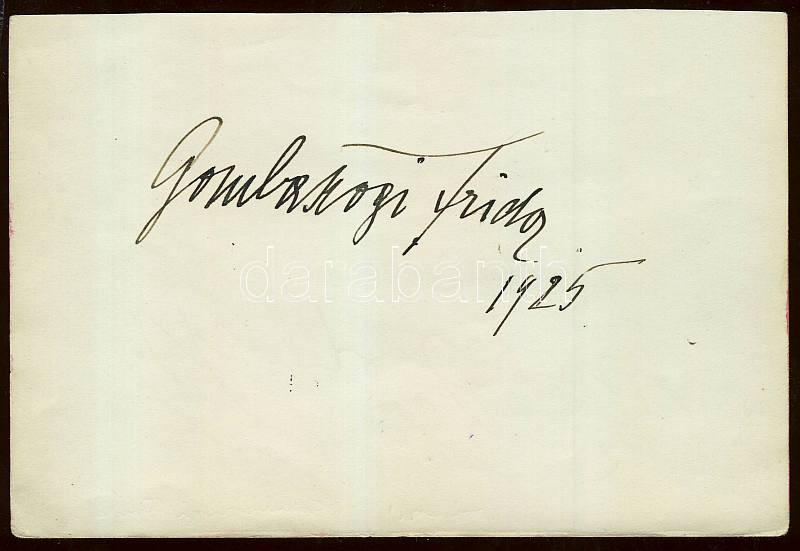 Gombaszögi Frida
1925
darabanth